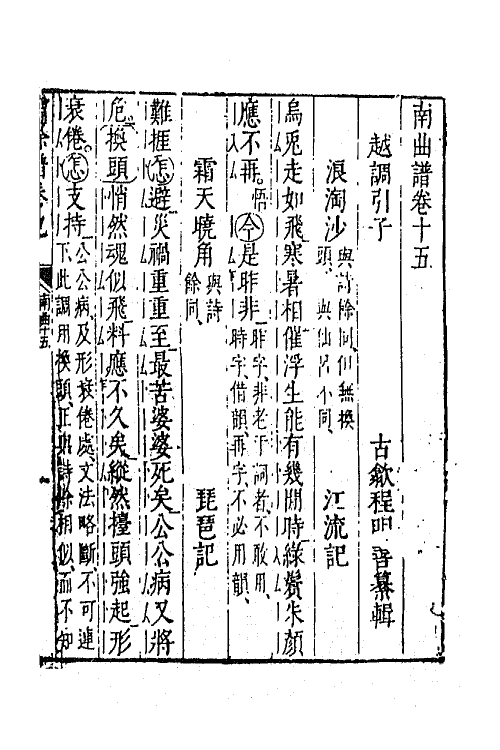 南曲譜卷十五
越調引子　古歙程明善纂輯
浪淘沙 與詩餘同但無換頭與仙呂不同 江流記
烏兎走如飛寒暑相催浮生能有幾閒時綠鬢朱顏
應不再悟今是昨非 昨字非老于詞者不敢用時字借韻再字不必用韻
霜天曉角 與詩餘同 琵琶記
難捱怎避災禍重重至最苦婆婆死矣公公病又將
危換頭悄然魂似飛料應不久矣縱然擡頭強起形
衰倦怎支持 公公病及形衰倦處文法略斷不可連下此調用換頭正與詩餘相似而不知
餘譜卷
南曲十五